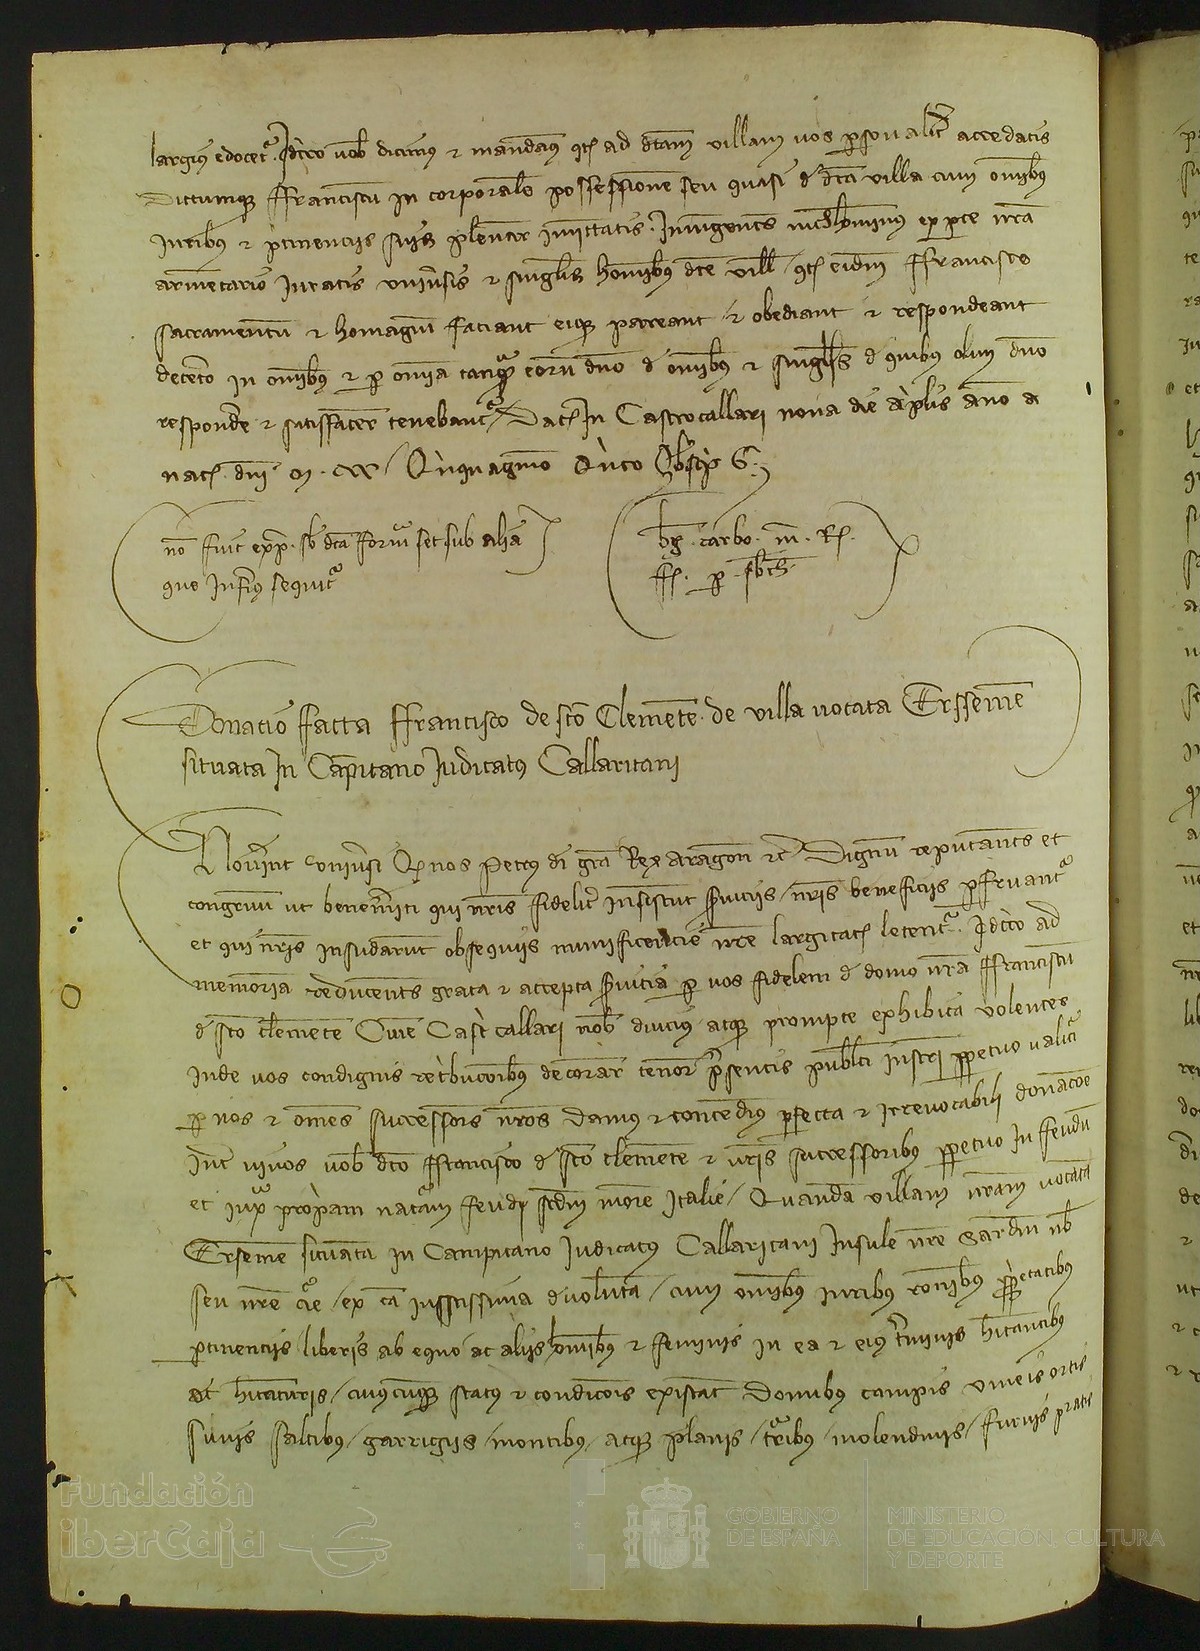 largius edocetr. Idcirco vob dicimus et mandamus qtz ad dcam villam vos personaliter accedatis
dictumque ffranciscu in corporale possessione seu quasi de dca villa cum omibus
iuribus et ptinenciis suis plenarie inmittatis. Iniungentes ex pte nra
armentario iuratis universis et singulis hominibus dce ville qtz eidem ffrancisco
sacramentu et homagiu faciant eique pareant et obediant et respondeant
decetero in omibus et per omnia tanquam eorum dno de omibus et singulis de quibus olim dno
respondere et satisfacere tenebantur. Dat in Castrocallari nona die aprilis anno a
nat dni M CCC Quinquagmo Quinto
no fuit exp sb dca forma set sub alia
que inferius sequitr
carbo m R
ff p
Donacio facta ffrancisco de sco Clemente de villa vocata Erssemene
situata in Capitano Iudicatus Callaritani
Noverint universi Q nos Petrus di gra Rex aragon etc Dignum reputantes et
congruum ut benemeriti qui nris fideliter insistunt serviciis nris beneficiis perfruantur
et qui nris insudarunt obsequiis munificencie nre largitat letentr. Idcirco ad
memoria reducentes grata et accepta servicia per vos fidelem de domo nra ffranciscu
de sco clemente Civem Castri callari nob diucius atque prompte exhibita volentes
inde vos condignis retribucionibus decorare tenore presentis publici instri perpetuo valituri
per nos et omes successores nros damus et concedimus perfecta et irrevocabili donacoe
inter vivos vob dco ffrancisco de sco clemente et vris successoribus perpetuo in ffeudu
et iuxta propriam naturam feudi scdm more Italie Quandam villam nram vocata
Ersemene situata in Campitano Iudicatus Callaritani Insule nre Sardinie nob
seu nre curie ex ca iustissima devoluta cum omibus iuribus racionibus proprietatibus
ptinenciis liberis ab equo ac aliis hominibus et feminis in ea et eius terminis habitantibus
et habitaturis cuiuscumque status et condicois existant Domibus campis vineis ortis
silvis saltibus garrigiis montibus atque planis turribus molendinis furnis pratis
Fundación
iberCaja
GOBIERNO
DE ESPAÑA
MINISTERIO
DE EDUCACIÓN, CULTURA
Y DEPORTE